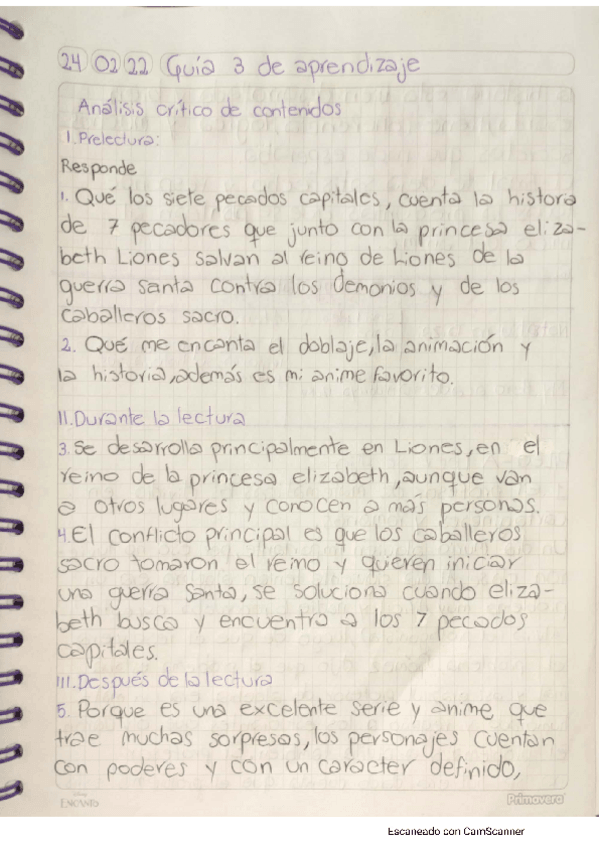 24 02 22 Guía 3 de aprendizaje
Análisis crítico de contenidos
I. Prelectura:
Responde
1. Qué los siete pecados capitales, cuenta la historia
de 7 pecadores que junto con la princesa eliza-
beth Liones salvan al reino de Liones de la
guerra santa contra los demonios y de los
caballeros sacro.
2. Qué me encanta el doblaje, la animación y
la historia, además es mi anime favorito.
II. Durante la lectura
3. Se desarrolla principalmente en Liones, en el
reino de la princesa elizabeth, aunque van
a otros lugares y conocen a más personas.
4. El conflicto principal es que los caballeros
sacro tomaron el reino y quieren iniciar
una guerra santa, se soluciona cuando eliza-
beth busca y encuentra a los 7 pecados
capitales.
III. Después de la lectura
5. Porque es una excelente serie y anime que
trae muchas sorpresas, los personajes cuentan
con poderes y con un caracter definido,
ENCANTO
Primavera
Escaneado con CamScanner